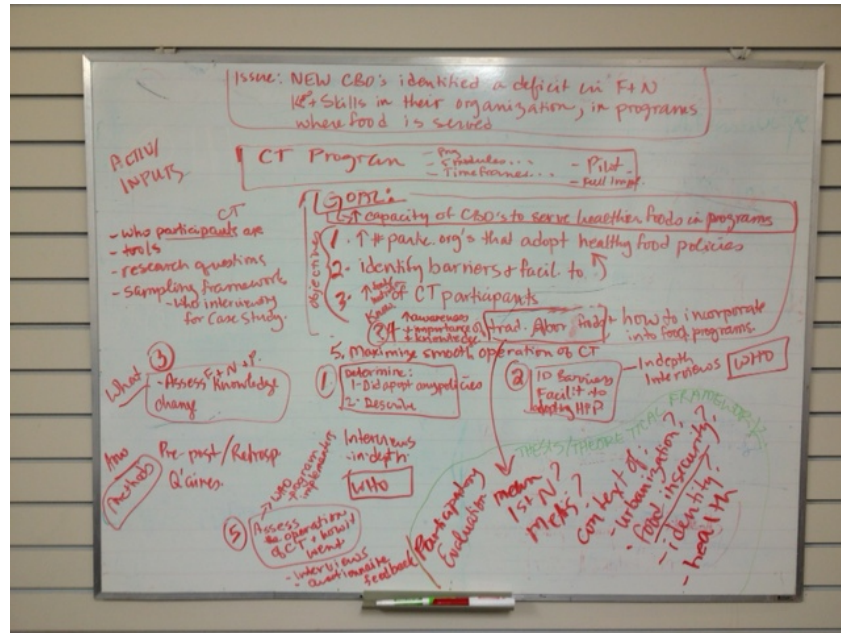 Issue: NEW CBO's identified a deficit in F+N
+ Skills in their organization, in programs
where food is served
INPUTS
CT Program
- Timeframes...
- Pilot
- Full Impl.
GOAL:
↑ capacity of CBO's to serve healthier foods in programs
objectives
1. ↑ # partic. org's that adopt healthy food policies
2. identify barriers & facil to
3. ↑ of CT participants
4
↑ awareness
+ importance of
+ knowledge
trad. Abor foods + how to incorporate
into food programs.
5. Maximize smooth operation of CT
CT
- who participants are
- tools
- research questions
- sampling framework
- who interviewing
for Case Study.
What
3
- Assess F+N+P.
Knowledge
change
1.
Determine:
1- Did adopt any policies
2- Describe
2
ID Barriers
Facilit to
adopting HFP
- Indepth
Interviews
WHO
how
methods
Pre-post/Retrosp.
Q'aires.
Interviews
-in-depth
WHO
WHO
-program
implementers
5
Assess
operation
of CT + how it
went
- interviews
- questionnaire
feedback
Participatory
Evaluation
THESIS/THEORETICAL FRAMEWORK
mean
1st N?
Metis?
context of:
- urbanization?
- food insecurity?
- identity?
- health